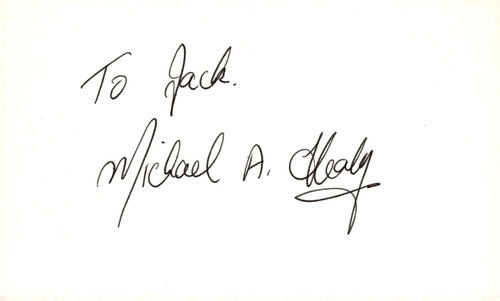 To Jack.
Michael A. Healy